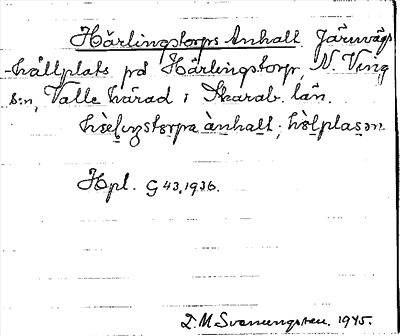 Härlingstorps Anhalt Järnvägs
-hållplats på Härlingstorp, N. Ving
s:n, Valle härad i Skarab. län.
anhalt;
Hpl. G 43, 1936.
D. M. Svenungsten. 1945.